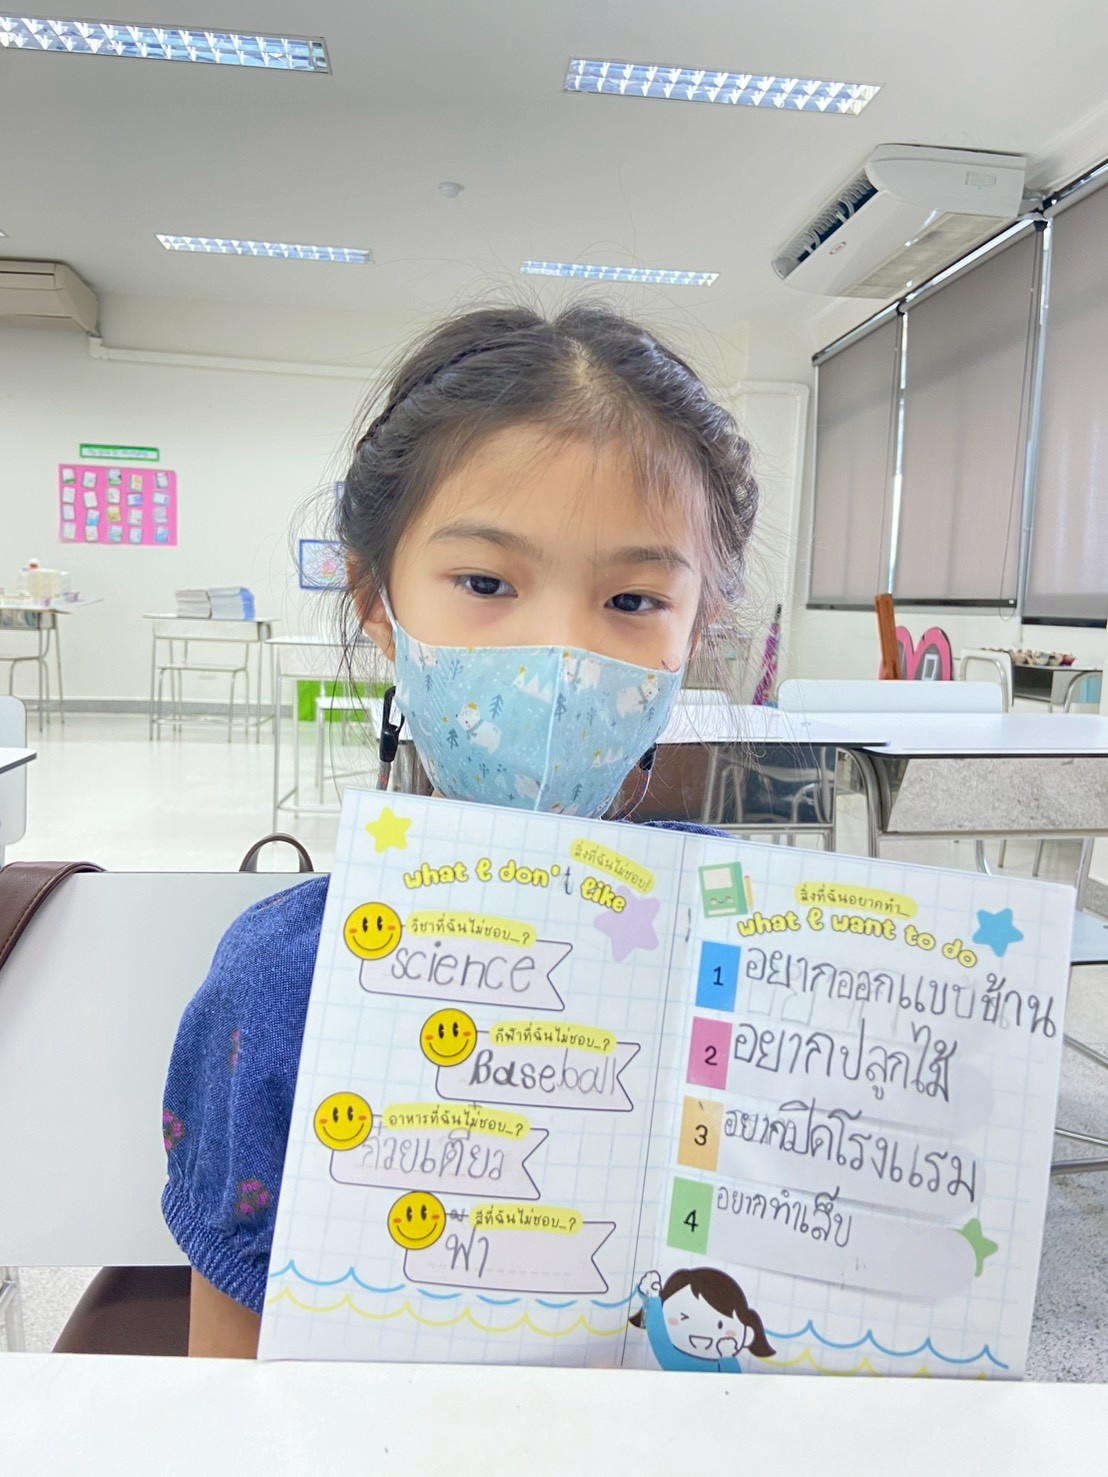 what I don't like
สิ่งที่ฉันไม่ชอบ!
วิชาที่ฉันไม่ชอบ...?
science
กีฬาที่ฉันไม่ชอบ...?
Baseball
อาหารที่ฉันไม่ชอบ...?
ก๋วยเตี๋ยว
สีที่ฉันไม่ชอบ...?
ฟ้า
สิ่งที่ฉันอยากทำ...
what I want to do
1 อยากออกแบบบ้าน
2 อยากปลูกไม้
3 อยากเปิดโรงแรม
4 อยากทำเล็บ